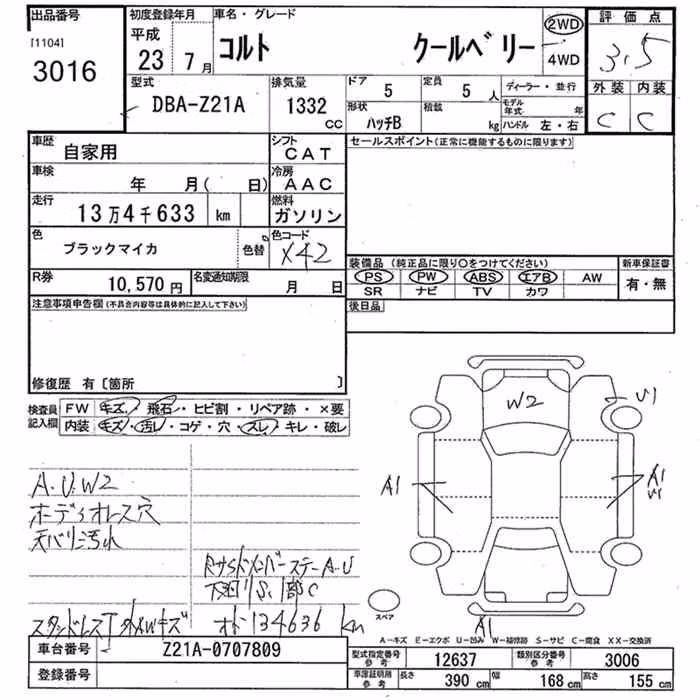 出品番号
[1104]
3016
初度登録年月
平成
23 7月
車名・グレード
コルト クールベリー
2WD
4WD
評価点
3.5
外装 内装
C C
型式
DBA-Z21A
排気量
1332 CC
ドア 5
定員 5 人
形状 ハッチB
積載 kg
ディーラー・並行
モデル年式 年
ハンドル 左・右
車歴
自家用
シフト
CAT
セールスポイント(正常に機能するものに限ります)
車検
年 月( 日)
冷房
AAC
走行
13万4千633 km
燃料
ガソリン
色
ブラックマイカ
色替
色コード
X42
装備品 (純正品に限り○をつけてください)
新車保証書
PS PW ABS エアB AW
有・無
SR ナビ TV カワ
R券
10,570 円
名変通知期限
月 日
後日品
注意事項申告欄(不具合内容等は具体的に記入して下さい)
修復歴 有〔箇所 〕
検査員記入欄
FW キズ・飛石・ヒビ割・リペア跡・×要
内装 キズ・汚レ・コゲ・穴・スレ・キレ・破レ
A.U.W2
ボーディオレス穴
天バリ汚れ
下廻りS.1部C
オド134636 km
W2
U1
A1
A1
U1
A1
スペア
A−キズ E−エクボ U−凹み W−補修跡 S−サビ C−腐食 XX−交換済
車台番号
Z21A-0707809
登録番号
型式指定番号 参考
12637
類別区分番号 参考
3006
車庫証明用 参考
長さ 390 cm
幅 168 cm
高さ 155 cm